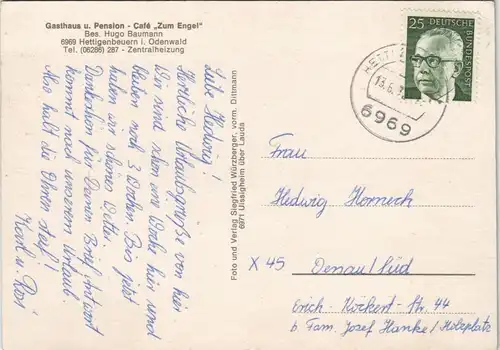 Gasthaus u. Pension - Café „Zum Engel"
Bes. Hugo Baumann
6969 Hettigenbeuern i. Odenwald
Tel. (06286) 287 - Zentralheizung
Liebe Hedwig!
Herzliche Urlaubsgrüße von hier
Wir sind schon eine Woche hier und
bleiben noch 3 Wochen. Bis jetzt
haben wir schönes Wetter.
Dankeschön für Deinen Brief. Antwort
kommt nach unserem Urlaub.
Also halt die Ohren steif!
Karl u. Rosi
Foto und Verlag Siegfried Würzberger, vorm. Dittmann
6971 Uissigheim über Lauda
25
DEUTSCHE BUNDESPOST
6969
Frau
Hedwig Hornech
X 45
Denau/Süd
Erich-Köckert-Str. 44
b. Fam. Josef Hanke/Holzplatz